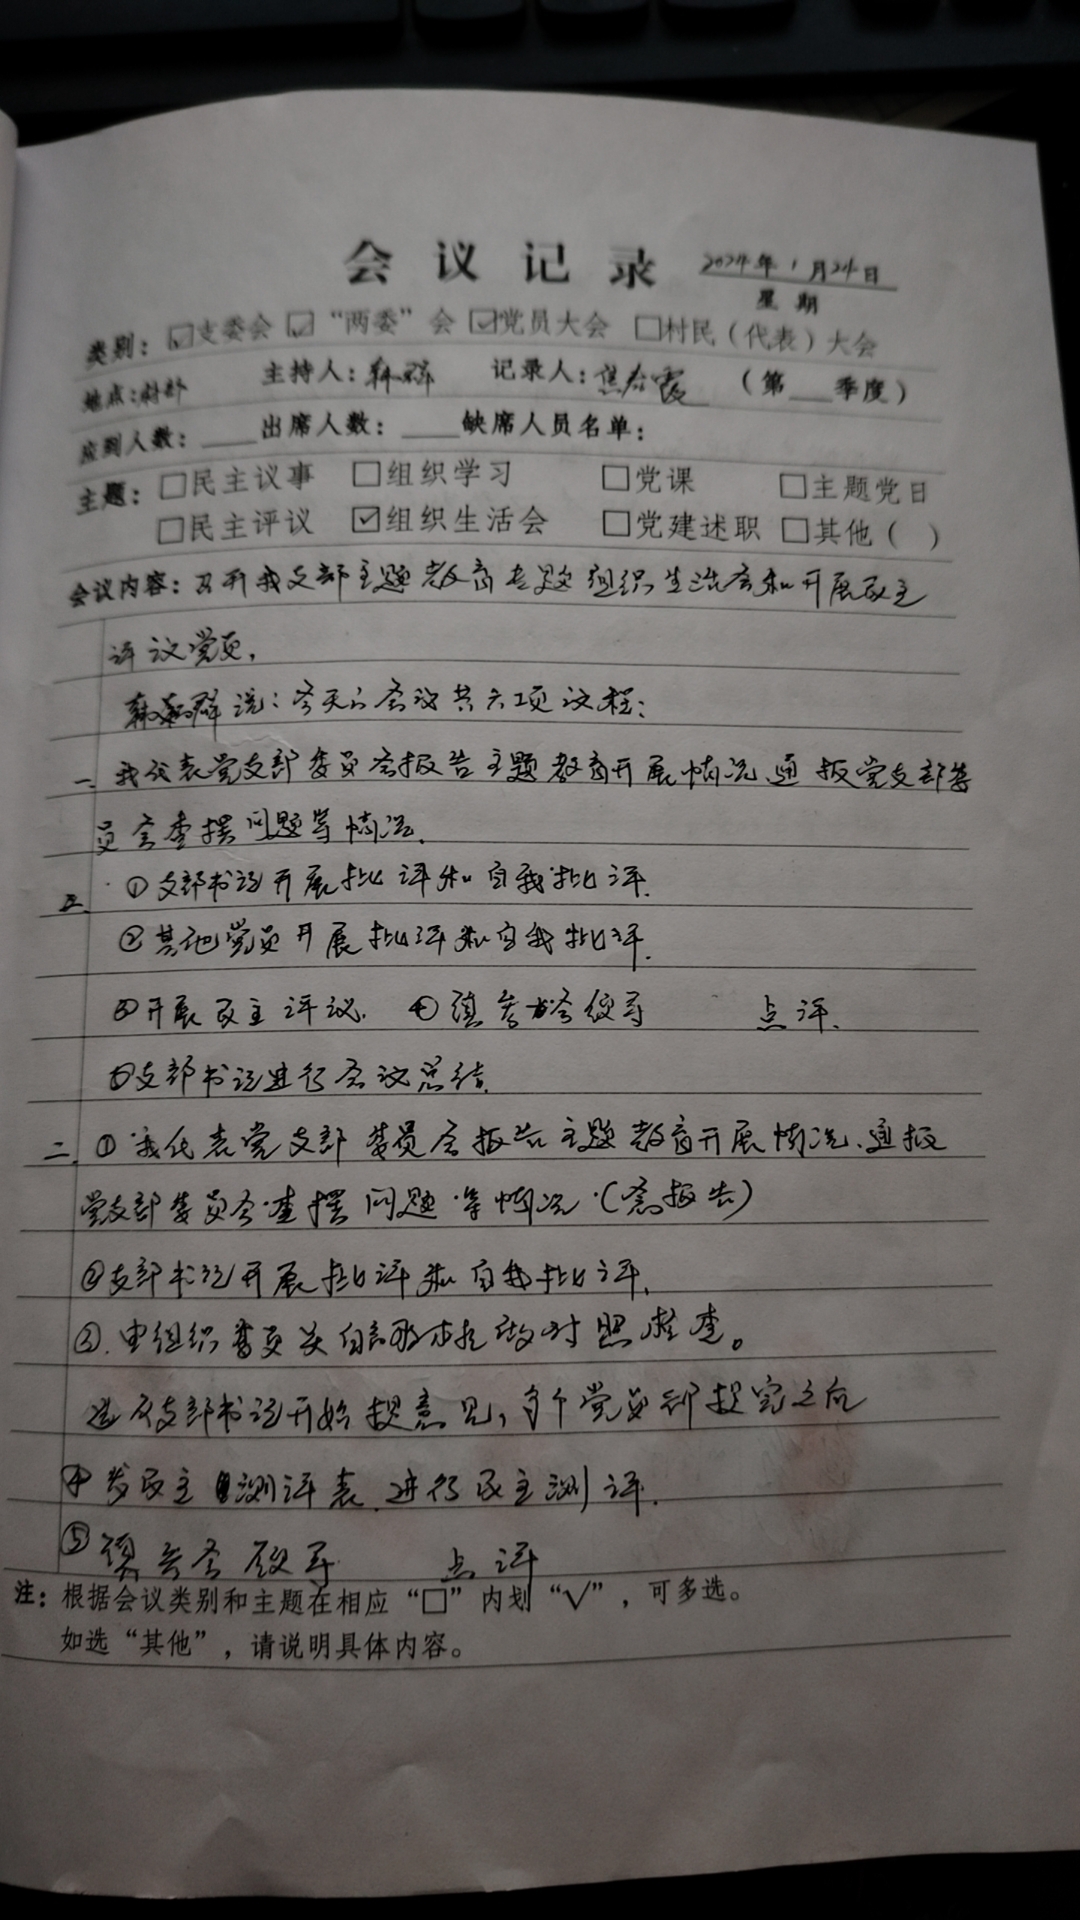 会议记录 2024年1月24日
星期
类别：☑支委会 ☑“两委”会 ☑党员大会 □村民（代表）大会
地点：村部 主持人：韩群 记录人：焦春霞 （第 季度）
应到人数： 出席人数： 缺席人员名单：
主题：□民主议事 □组织学习 □党课 □主题党日
□民主评议 ☑组织生活会 □党建述职 □其他（ ）
会议内容：召开我支部主题教育专题组织生活会和开展民主
评议党员，
群说：今天的会议共六项议程：
一、我代表党支部委员会报告主题教育开展情况、通报党支部委
员会查摆问题等情况、
二、①支部书记开展批评和自我批评、
②其他党员开展批评和自我批评、
③开展民主评议、④镇党委领导 点评、
⑤支部书记进行会议总结、
二、①我代表党支部委员会报告主题教育开展情况、通报
党支部委员会查摆问题等情况（念报告）
②支部书记开展批评和自我批评、
③、由组织委员 做对照检查。
支部书记开始提意见，每个党员都提完之后
④发民主测评表、进行民主测评、
⑤镇党委领导 点评
注：根据会议类别和主题在相应“□”内划“√”，可多选。
如选“其他”，请说明具体内容。